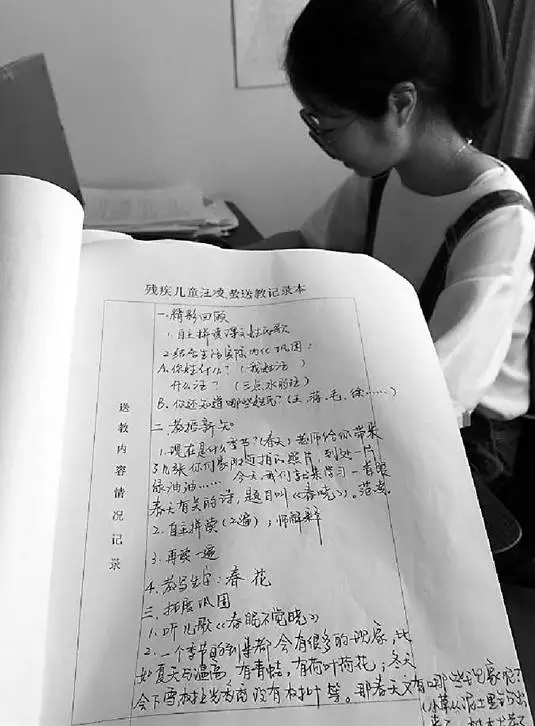 残疾儿童汪凌送教记录本
送教内容情况记录
一.精彩回顾
1.自主拼读课文姓氏歌
2.结合生活实际内化巩固:
A.你姓什么?(我姓汪)
什么汪?(三点水的汪)
B.你还知道哪些姓氏?(王、蒋、毛、徐……)
二.教授新知
1.现在是什么季节?(春天)老师给你带来
了几张你们家附近拍的照片,到处一片
绿油油…… 今天,我们来学习一首跟
春天有关的诗,题目叫《春晓》。范读
2.自主拼读(2遍);师解释
3.再读一遍
4.教写生字:春 花
三.拓展巩固
1.听儿歌《春眠不觉晓》
2.一个季节的到来都会有很多的现象,比
如夏天气温高,有青蛙,有荷叶荷花;冬天
会下雪,树上光秃秃没有树叶等。那春天又有哪些现象呢?
(小草从泥土里